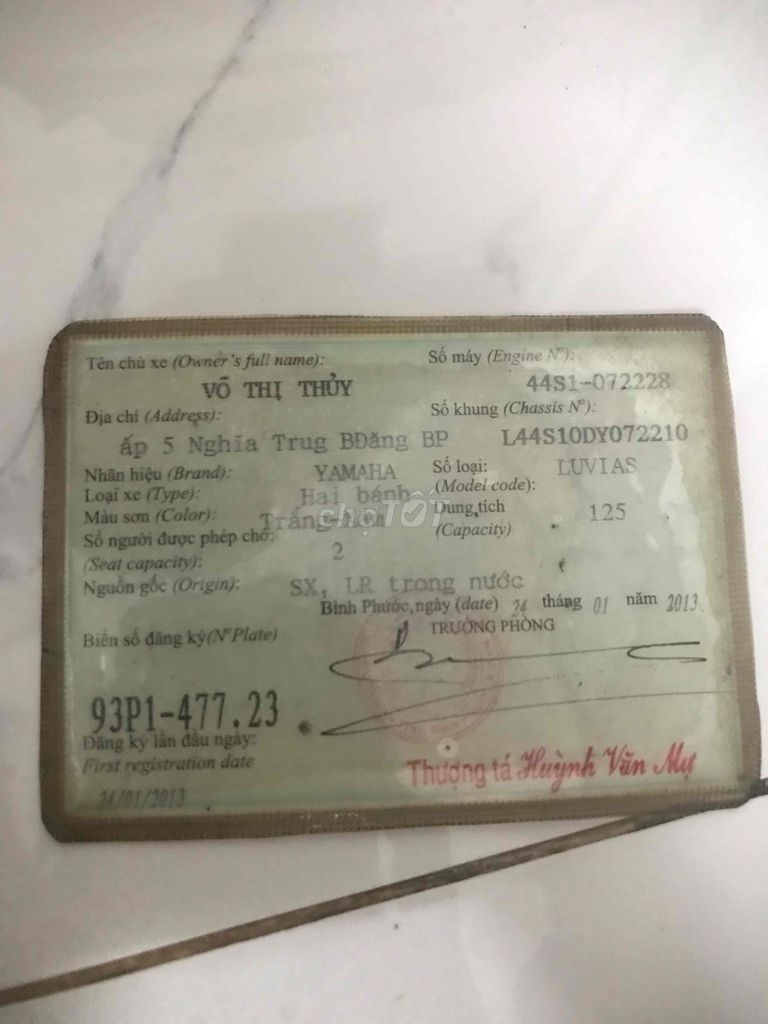 Tên chủ xe (Owner's full name):
VÕ THỊ THỦY
Số máy (Engine Nº):
44S1-072228
Địa chỉ (Address):
ấp 5 Nghĩa Trug BĐăng BP
Số khung (Chassis Nº):
L44S10DY072210
Nhãn hiệu (Brand): YAMAHA
Số loại: LUVIAS
(Model code):
Loại xe (Type): Hai bánh
Màu sơn (Color): Trắng
Dung tích 125
(Capacity)
Số người được phép chở: 2
(Seat capacity):
Nguồn gốc (Origin): SX, LR trong nước
Bình Phước, ngày (date) 24 tháng 01 năm 2013
TRƯỞNG PHÒNG
Biển số đăng ký(NºPlate)
93P1-477.23
Đăng ký lần đầu ngày:
First registration date
24/01/2013
Thượng tá Huỳnh Văn Mự
chợTỐT